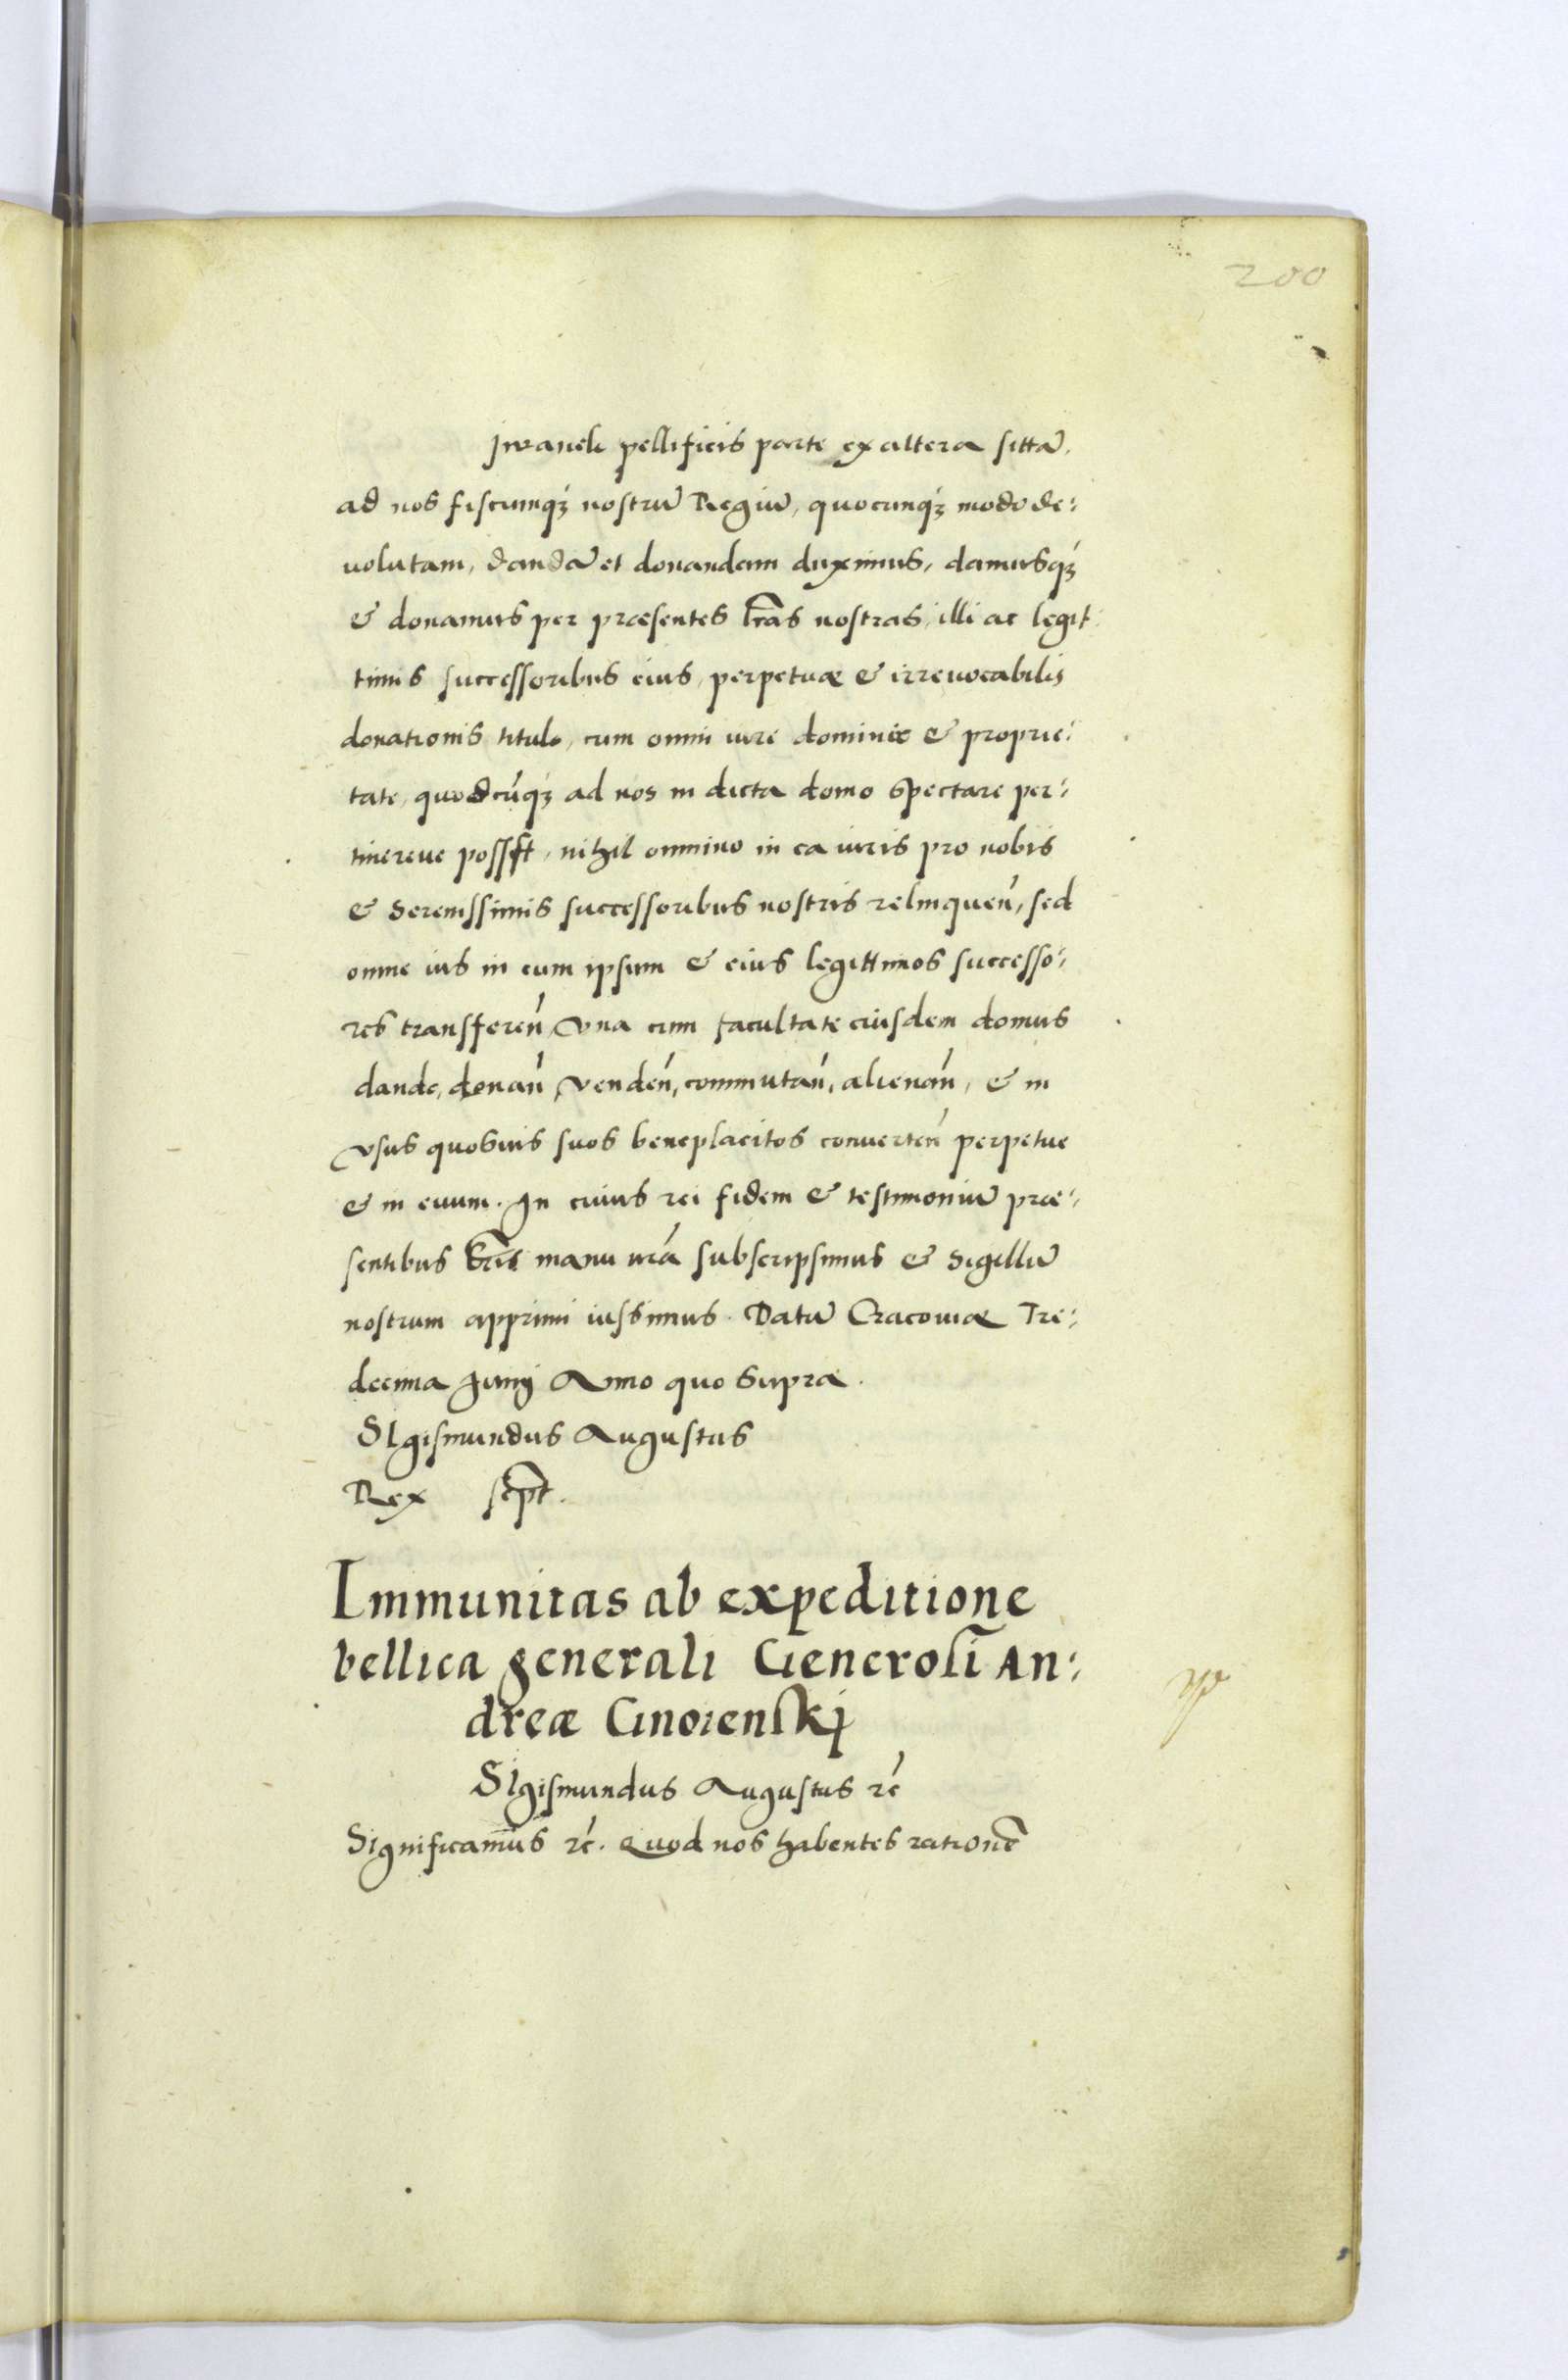 200
Jwanek pellificis parte ex altera sittã,
ad nos fiscumq́ȝ nostrũ Regiũ, quocunq́ȝ modo de:
uolutam, dandã et donandam duximus, damusq́ȝ
& donamus per præsentes lr̃as nostras, illi ac legit:
timis successoribus eius, perpetuæ & irreuocabilis
donationis titulo, cum omni iure dominii & proprie:
tate, quodcũq́ȝ ad nos in dicta domo spectare per:
tinereue possit, nihil omnino in ea iuris pro nobis
& Serenissimis successoribus nostris relinquen̂, sed
omne ius in eum ipsum & eius legittimos successo:
res transferen̂, vna cum facultate eiusdem domus
dande, donan̂, venden̂, commutan̂, alienan̂, & in
vsus quosuis suos beneplacitos conuerten̂ perpetue
& in euum. In cuius rei fidem & testimoniũ præ:
sentibus lr̃is manu nrã subscripsimus & Sigillũ
nostrum apprimi iussimus. Datũ Cracouiæ Tre:
decima Junij Anno quo supra.
SIgismundus Augustus
Rex scp̃t.
Immunitas ab expeditione
bellica generali Generosi An:
dreæ Gnoienskj
SIgismundus Augustus rć
Significamus rć. Quod nos habentes rationẽ